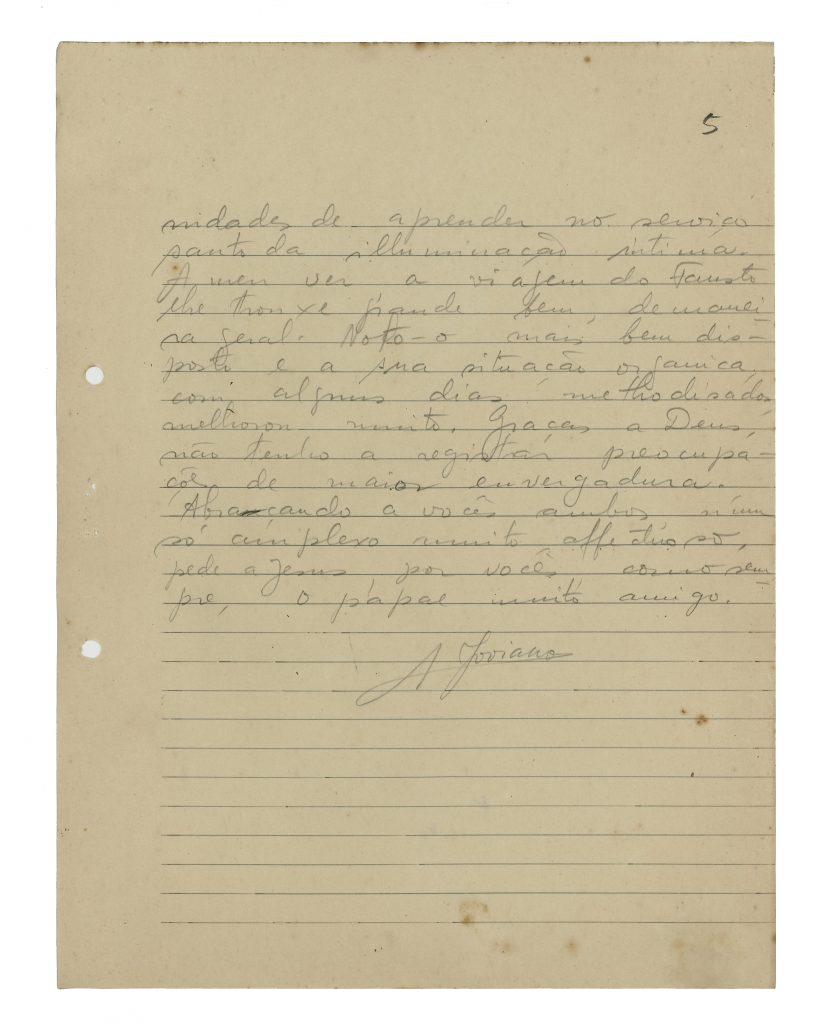 5
nidades de aprender no serviço
santo da illuminação intima.
A meu ver a viagem do Fausto
lhe trouxe grande bem, de manei
ra geral. Noto-o mais bem dis-
posto e a sua situação organica,
com alguns dias methodisados
melhorou muito. Graças a Deus,
não tenho a registrar preocupa-
çõe de maior envergadura.
Abraçando a vocês ambos n'um
só amplexo muito affectuoso,
pede a Jesus, por vocês como sem
pre, o papae muito amigo.
A Joviano